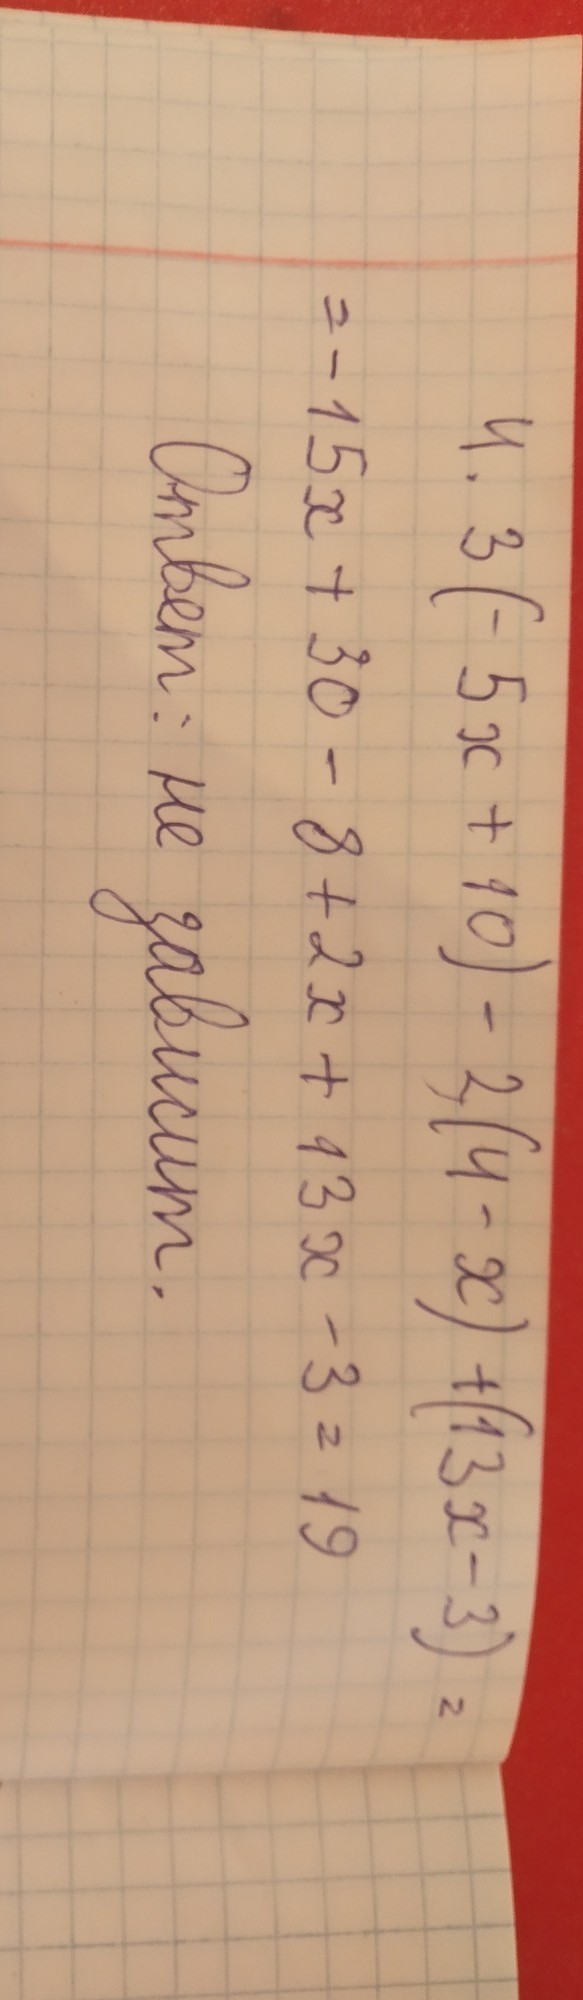 4. 3(-5x+10)-2(4-x)+(13x-3)=
=-15x+30-8+2x+13x-3=19
Ответ: не зависит.